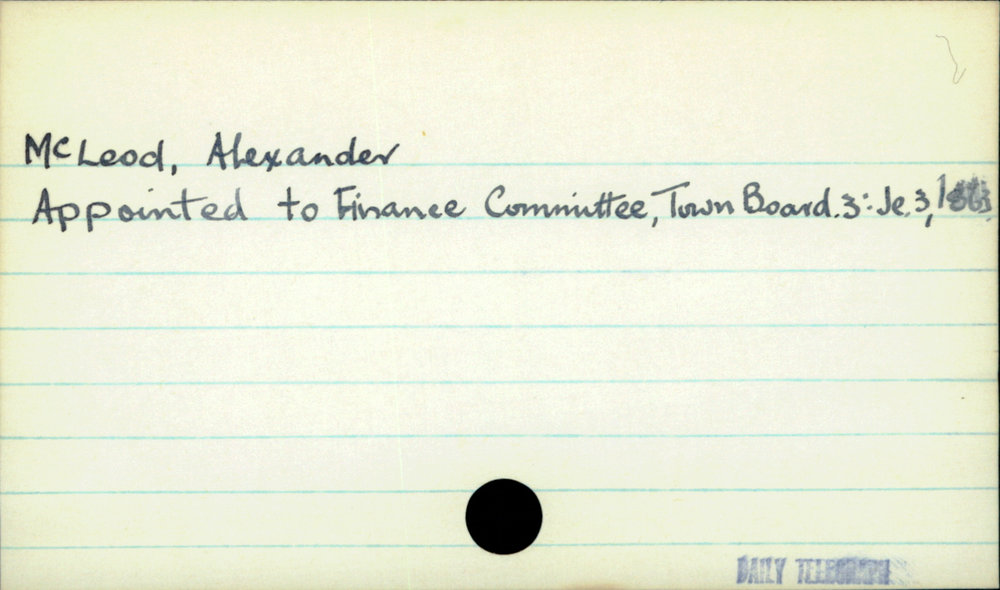 McLeod, Alexander
Appointed to Finance Committee, Town Board. 3: Je. 3, 1863
DAILY TELEGRAPH